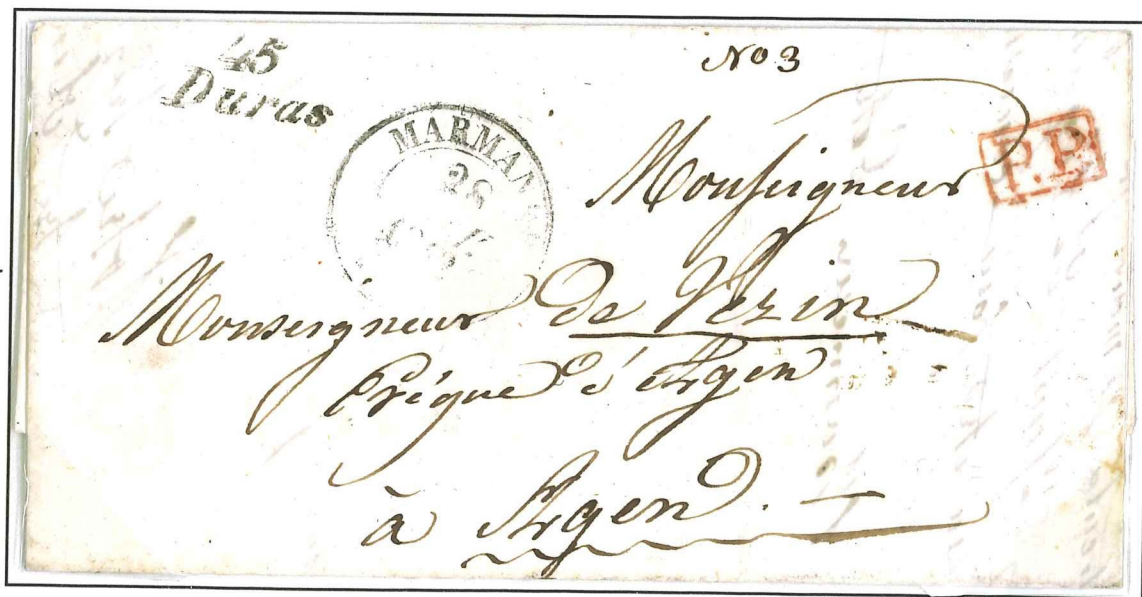 No 3
45
Duras
MARMAN
28
P.P.
Monseigneur
Monseigneur de Vezin
Evêque d'Agen
à Agen.